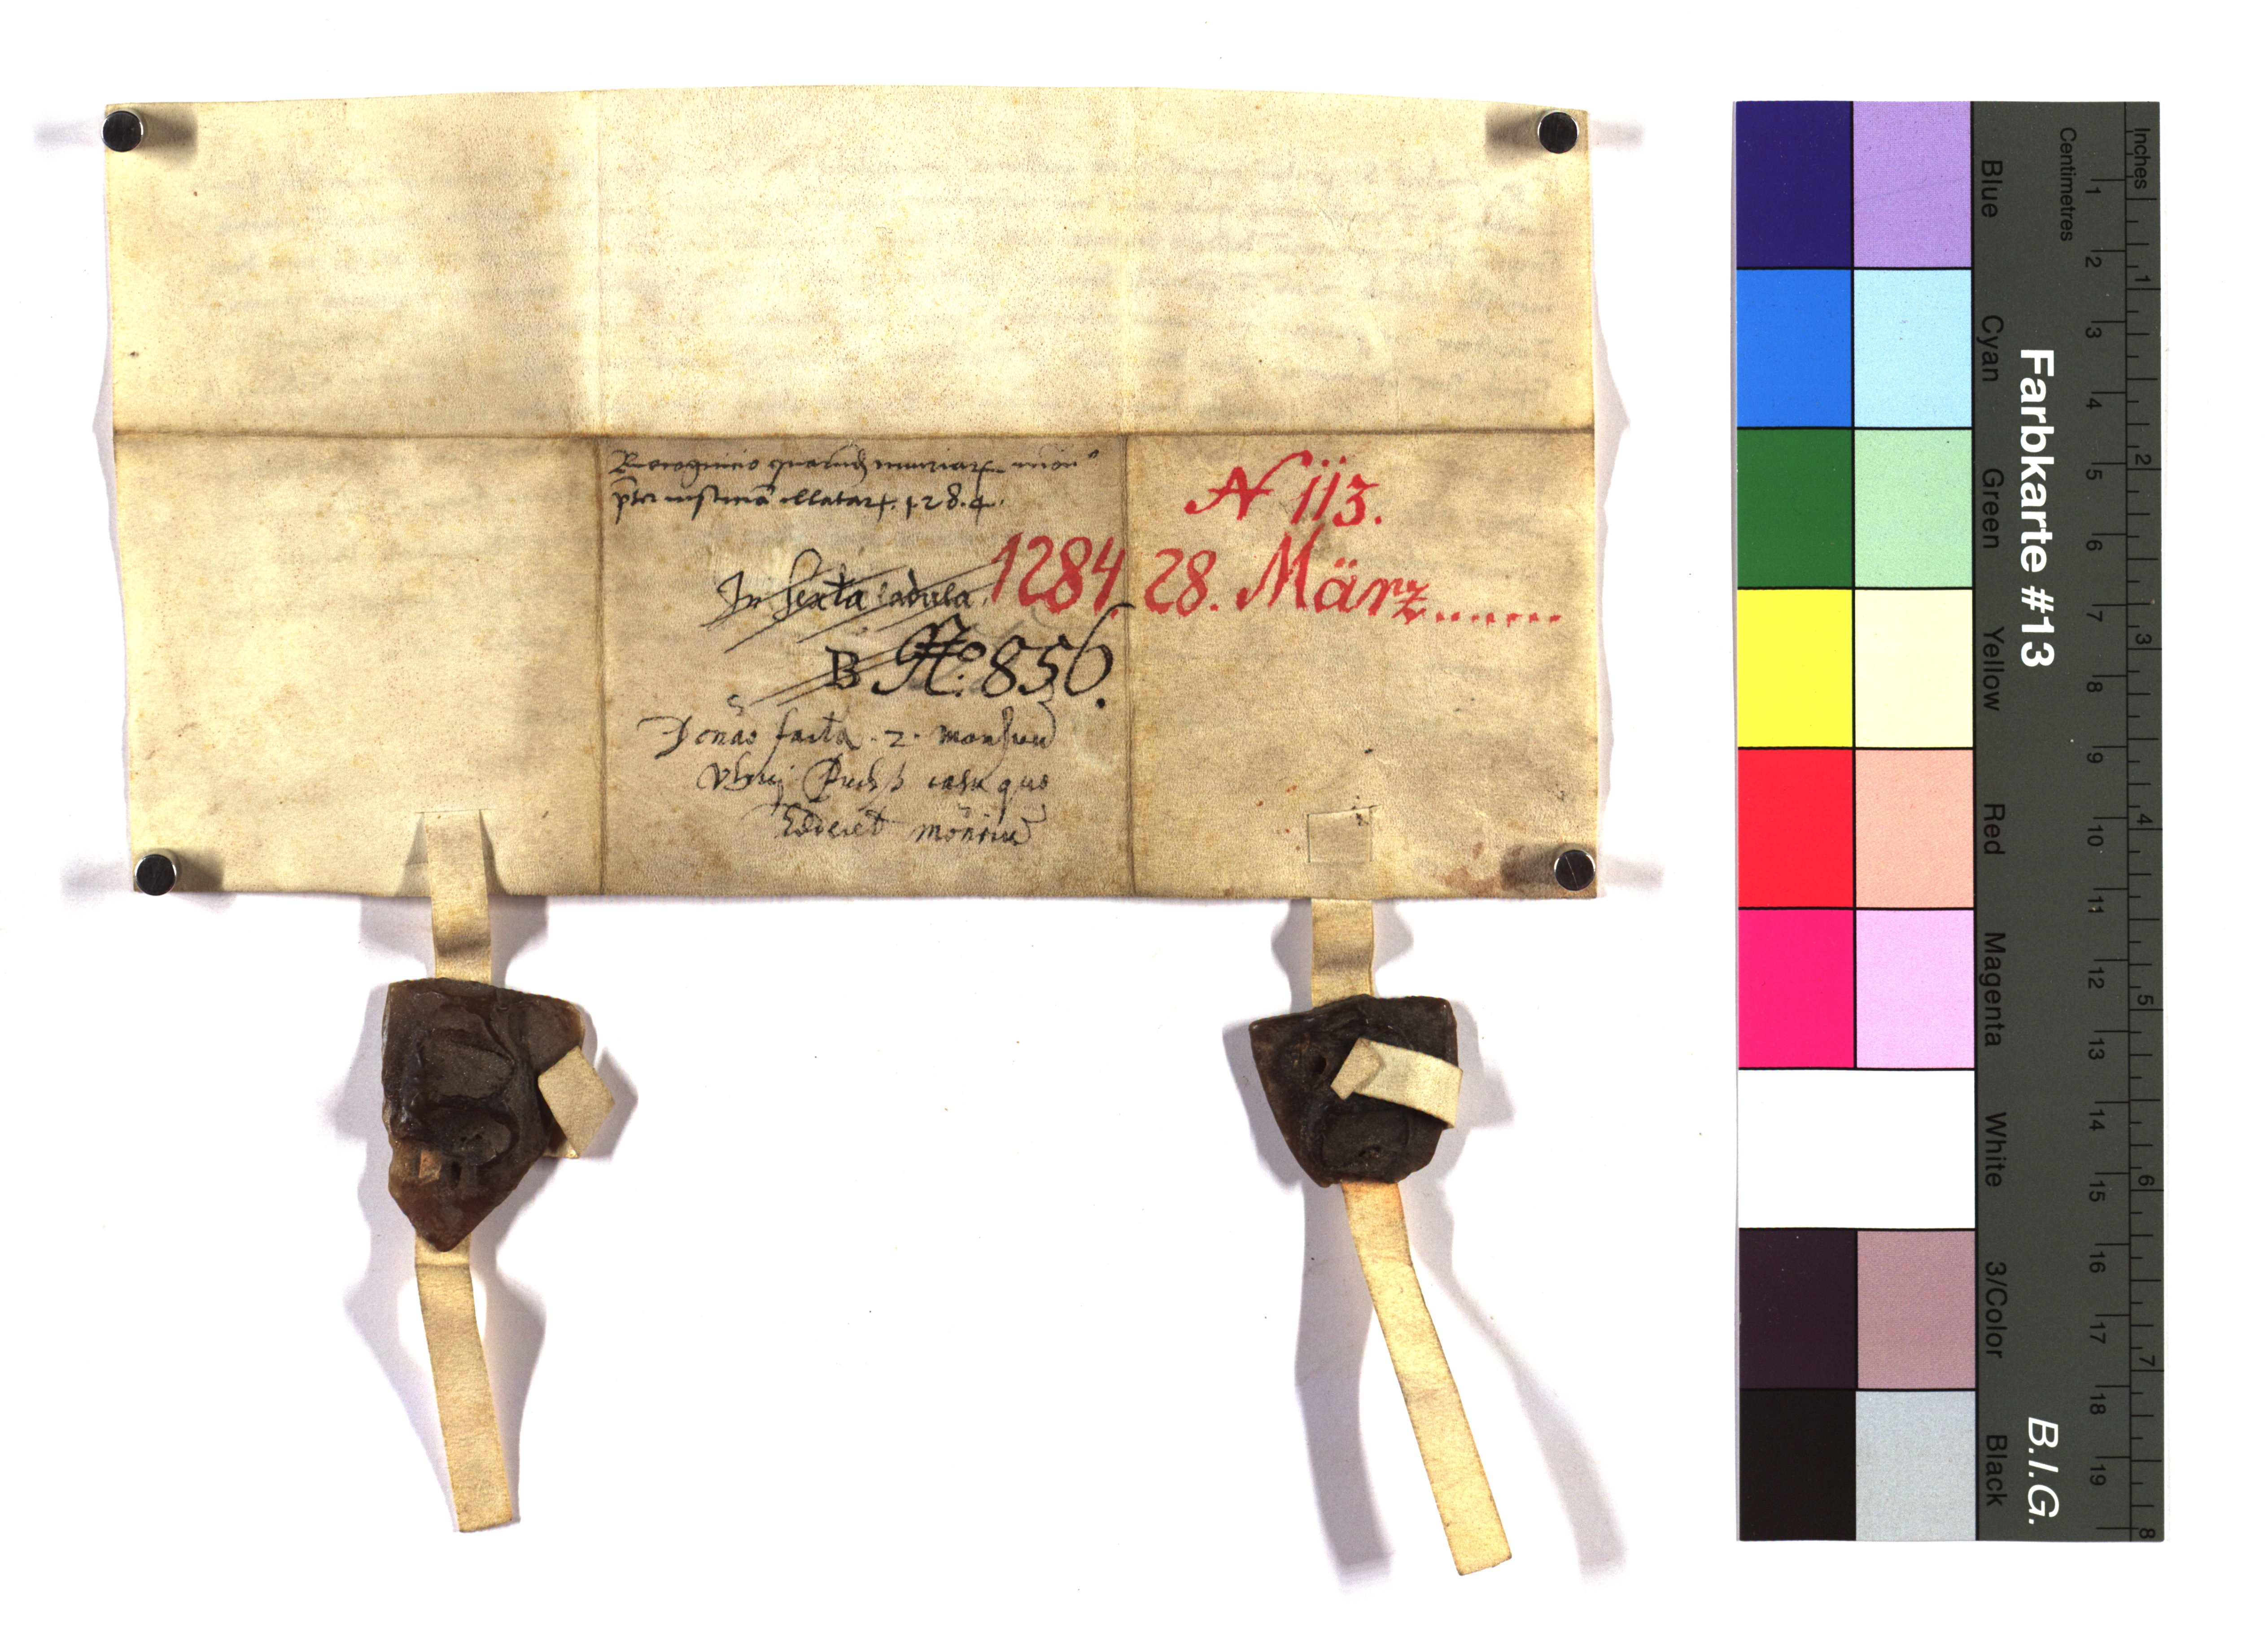 Recognicio quarund iniuriar mon
pter iusticia illatar. 1284.
N 113.
1284 28. März.......
In sexta ladula
B No. 856.
Donao facta . 2. mansuu
casu quo
mon
Farbkarte #13
B.I.G.
Inches
Centimetres
1 2 3 4 5 6 7 8 9 10 11 12 13 14 15 16 17 18 19
1 2 3 4 5 6 7 8
Blue Cyan Green Yellow Red Magenta White 3/Color Black